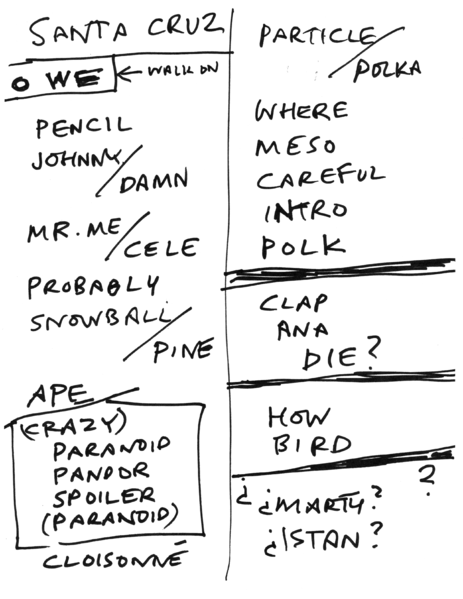 SANTA CRUZ
O WE ← WALK ON
PENCIL
JOHNNY/
DAMN
MR. ME/
CELE
PROBABLY
SNOWBALL/
PINE
APE
(CRAZY)
PARANOID
PANDOR
SPOILER
(PARANOID)
CLOISONNÉ
PARTICLE/
POLKA
WHERE
MESO
CAREFUL
INTRO
POLK
CLAP
ANA
DIE?
HOW
BIRD
¿ ?
¿MARTY?
¿ISTAN?